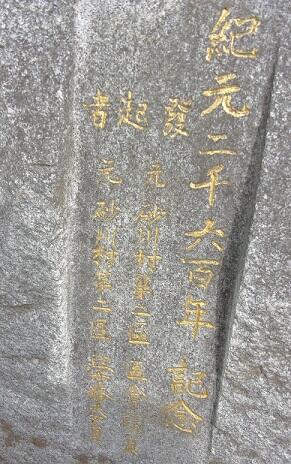 紀元二千六百年 記念
發起者
元 砂川村第一區
元 砂川村第二區